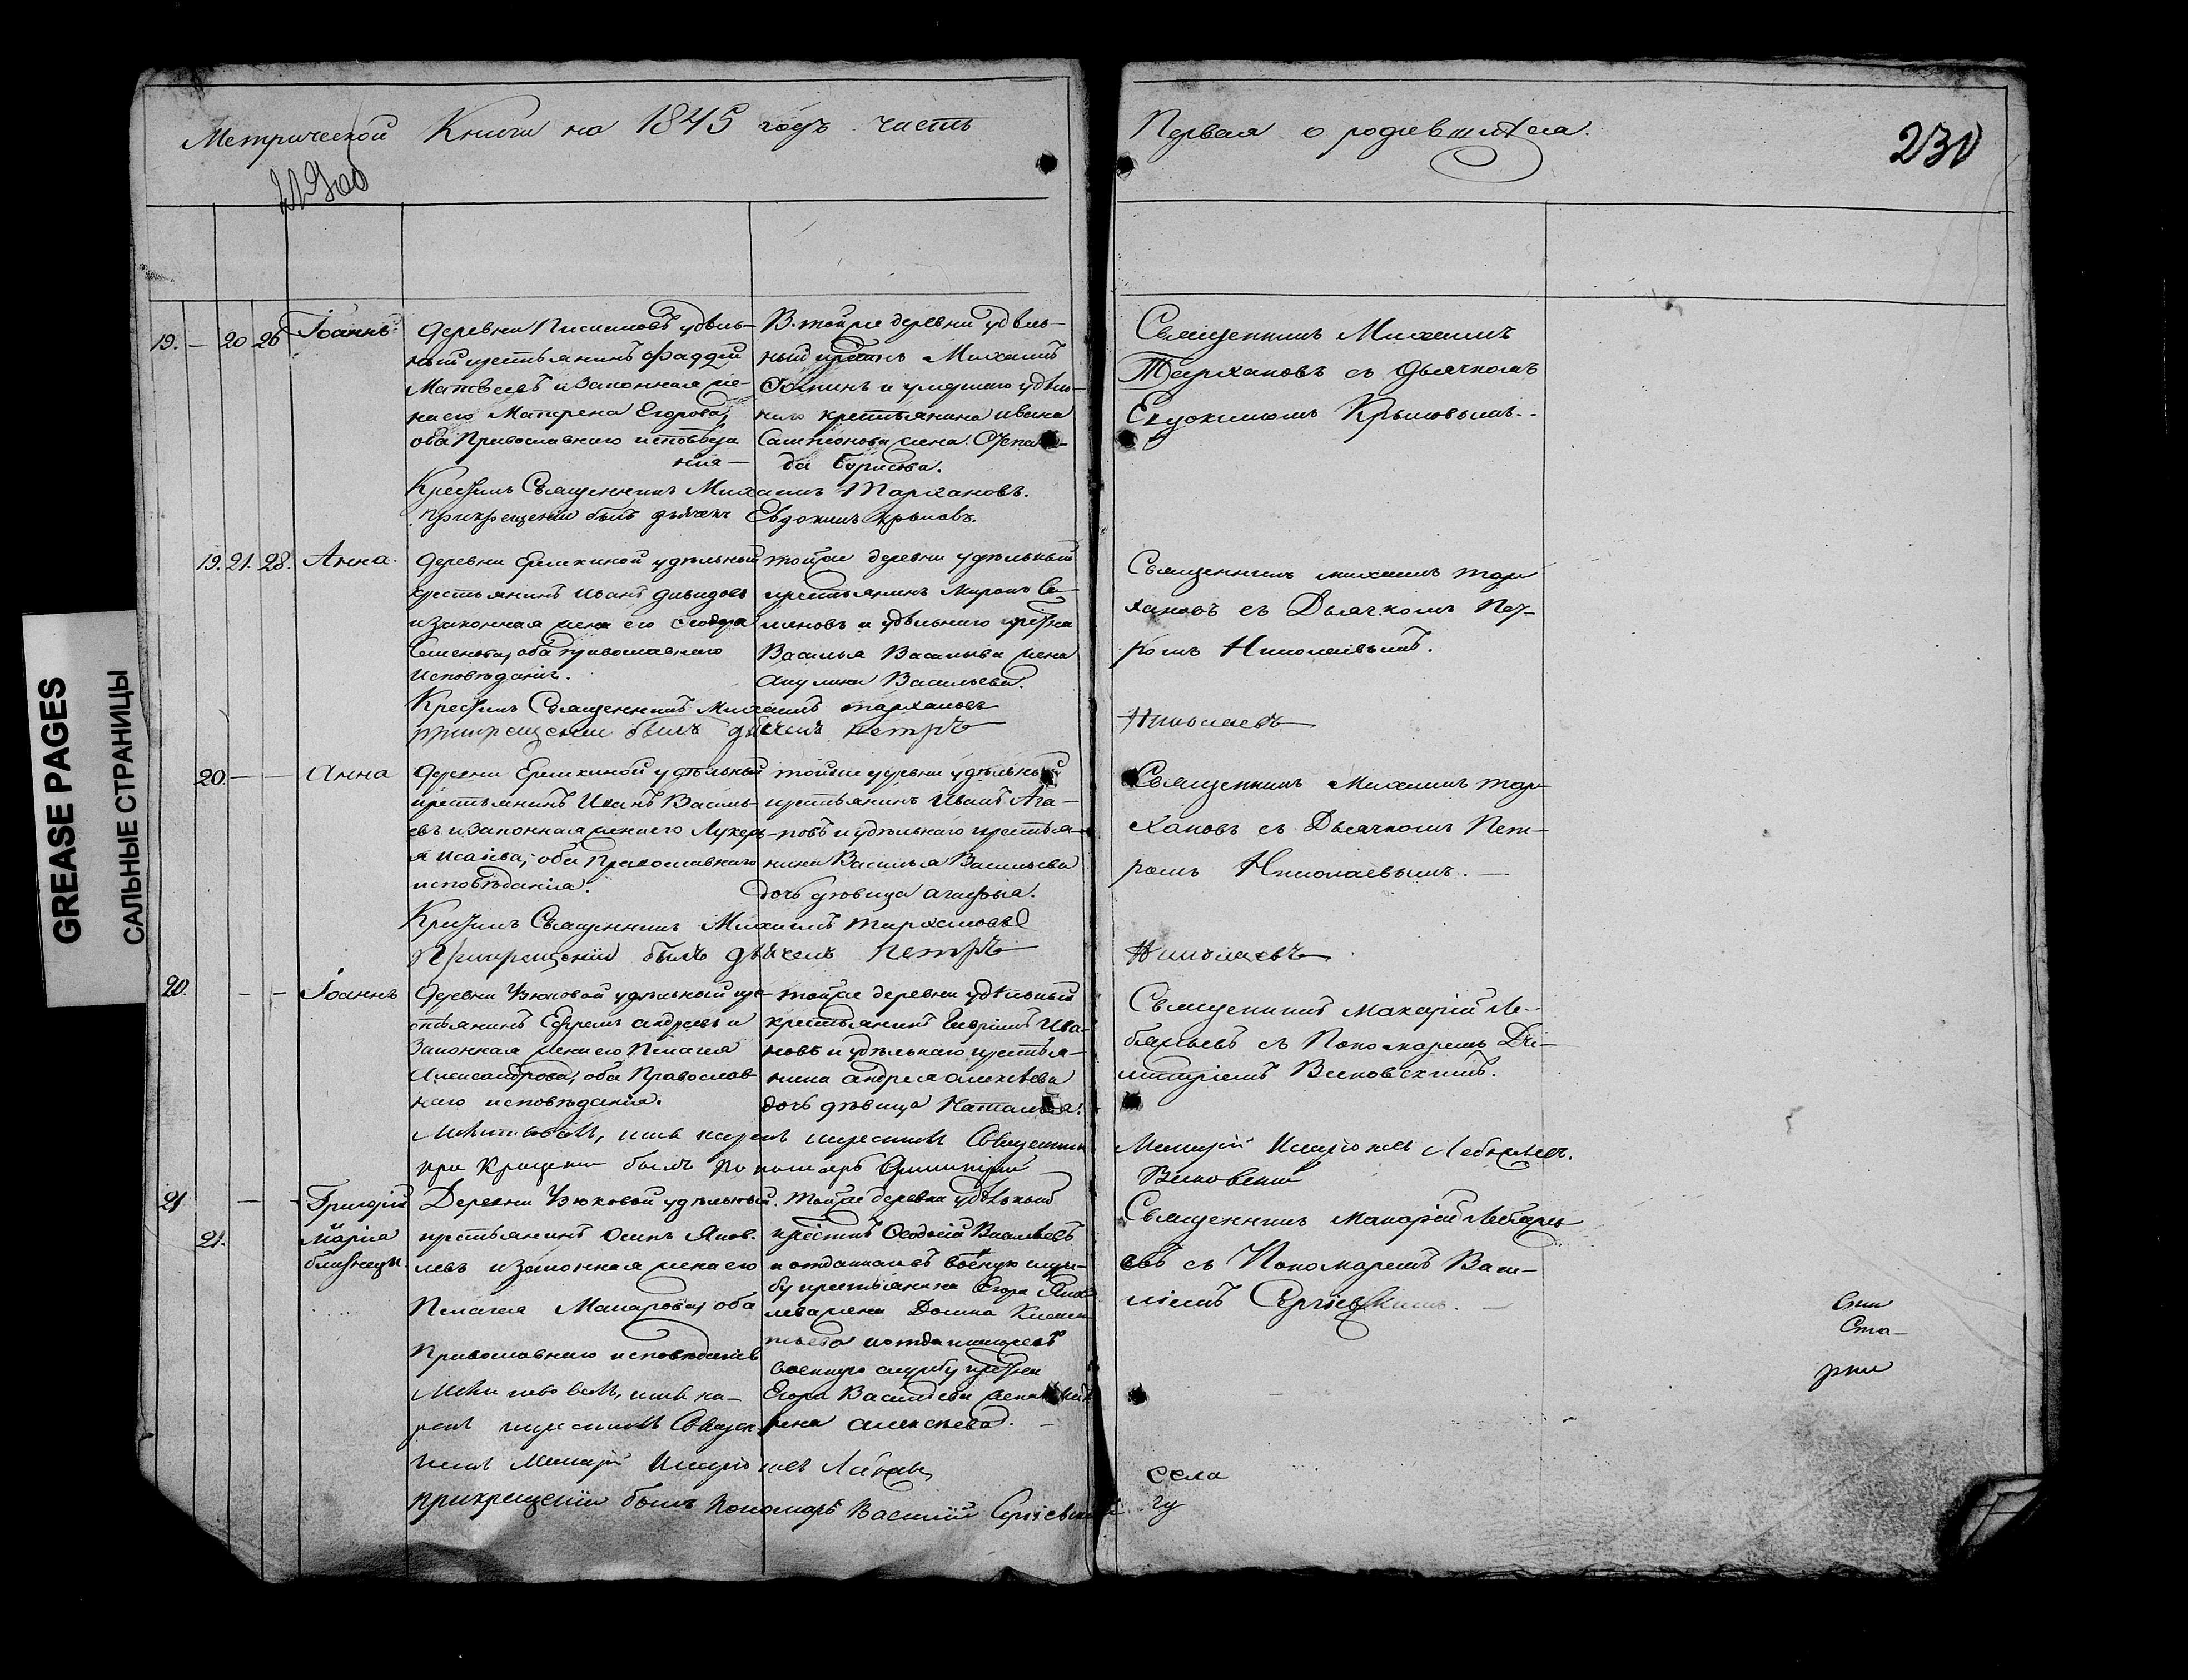 Метрической Книги на 1845 годъ часть
Первая о родившихся.
230
19. — 20 26 Іоаннъ.
деревни удѣль-
ный крестьянинъ Фаддей
Матвеевъ и законная же-
на его Матрена Егорова,
оба Православнаго исповѣда
нія —
В той же деревни удѣль-
ный крестнъ Михаилъ
и умершаго удѣль-
наго крестьянина Ивана
жена Степани-
да Борисова.
Священникъ Михаилъ
Тархановъ съ дьячкомъ
Евдокимомъ Крыловымъ.
Крестилъ Священникъ Михаилъ Тархановъ.
при крещеніи былъ дьячекъ Евдокимъ Крыловъ.
19. 21. 28. Анна.
деревни Ерыкиной удѣльный
крестьянинъ Иванъ Давидовъ
и законная жена его Феодора
Семенова, оба православнаго
исповѣданія.
той же деревни удѣльный
крестьянинъ Миронъ Се-
меновъ и удѣльнаго крестна
Василья Васильева жена
Акулина Васильева.
Священникъ Михаилъ Тар
хановъ съ Дьячкомъ Пет-
ромъ Николаевымъ.
Крестилъ Священникъ Михаилъ Тархановъ
при крещеніи былъ дьячекъ Петръ
Николаевъ
20. — — Анна
Деревни Ерыкиной удѣльный
крестьянинъ Иванъ Василь-
евъ и законная жена его Лукерь-
я Исаева, оба Православнаго
исповѣданія.
той же деревни удѣльный
крестьянинъ Иванъ Ага-
повъ и удѣльнаго крестья-
нина Василья Васильева
дочь дѣвица Агафья.
Священникъ Михаилъ Тар-
хановъ съ Дьячкомъ Пет-
ромъ Николаевымъ. —
Крестилъ Священникъ Михаилъ Тархановъ
При крещеніи былъ дьячекъ Петръ
Николаевъ
20. — — Іоаннъ
Деревни Узюковой удѣльный кре-
стьянинъ Ефремъ Андреевъ и
Законная жена его Пелагея
Александрова, оба Православ
наго исповѣданія.
той же деревни удѣльный
крестьянинъ Гавріилъ Ива-
новъ и удѣльнаго крестья-
нина Андрея Алексѣева
дочь дѣвица Наталья.
Священникъ Макарій Ле-
бяжьевъ съ Пономаремъ Ди-
митріемъ
Молитвовалъ, имя нарекъ и крестилъ Священникъ
при Крещеніи былъ Пономарь Димитрій
Макарій Лебяжьевъ.
21 — — Григорій
21. и
Марія
близнецы.
Деревни Узюковой удѣльный
крестьянинъ Осипъ Яков-
левъ и законная жена его
Пелагея Макарова, оба
Православнаго исповѣданія
Той же деревни удѣльный
крестнъ Феодосій Васильевъ
и отданнаго въ военную служ-
бу крестьянина Егора Яков
лева жена Домна Климен
тьева и отданнаго въ
военную службу крестна
Егора Васильева жена
рина Алексѣева. —
Священникъ Макарій Лебяжь
евъ съ Пономаремъ Васи-
ліемъ Сергіевскимъ. —
Молитвовалъ, имя на-
рекъ и крестилъ Священ-
никъ Макарій
При крещеніи былъ Пономарь Василій Сергіевскій
Ста-
села
GREASE PAGES
САЛЬНЫЕ СТРАНИЦЫ